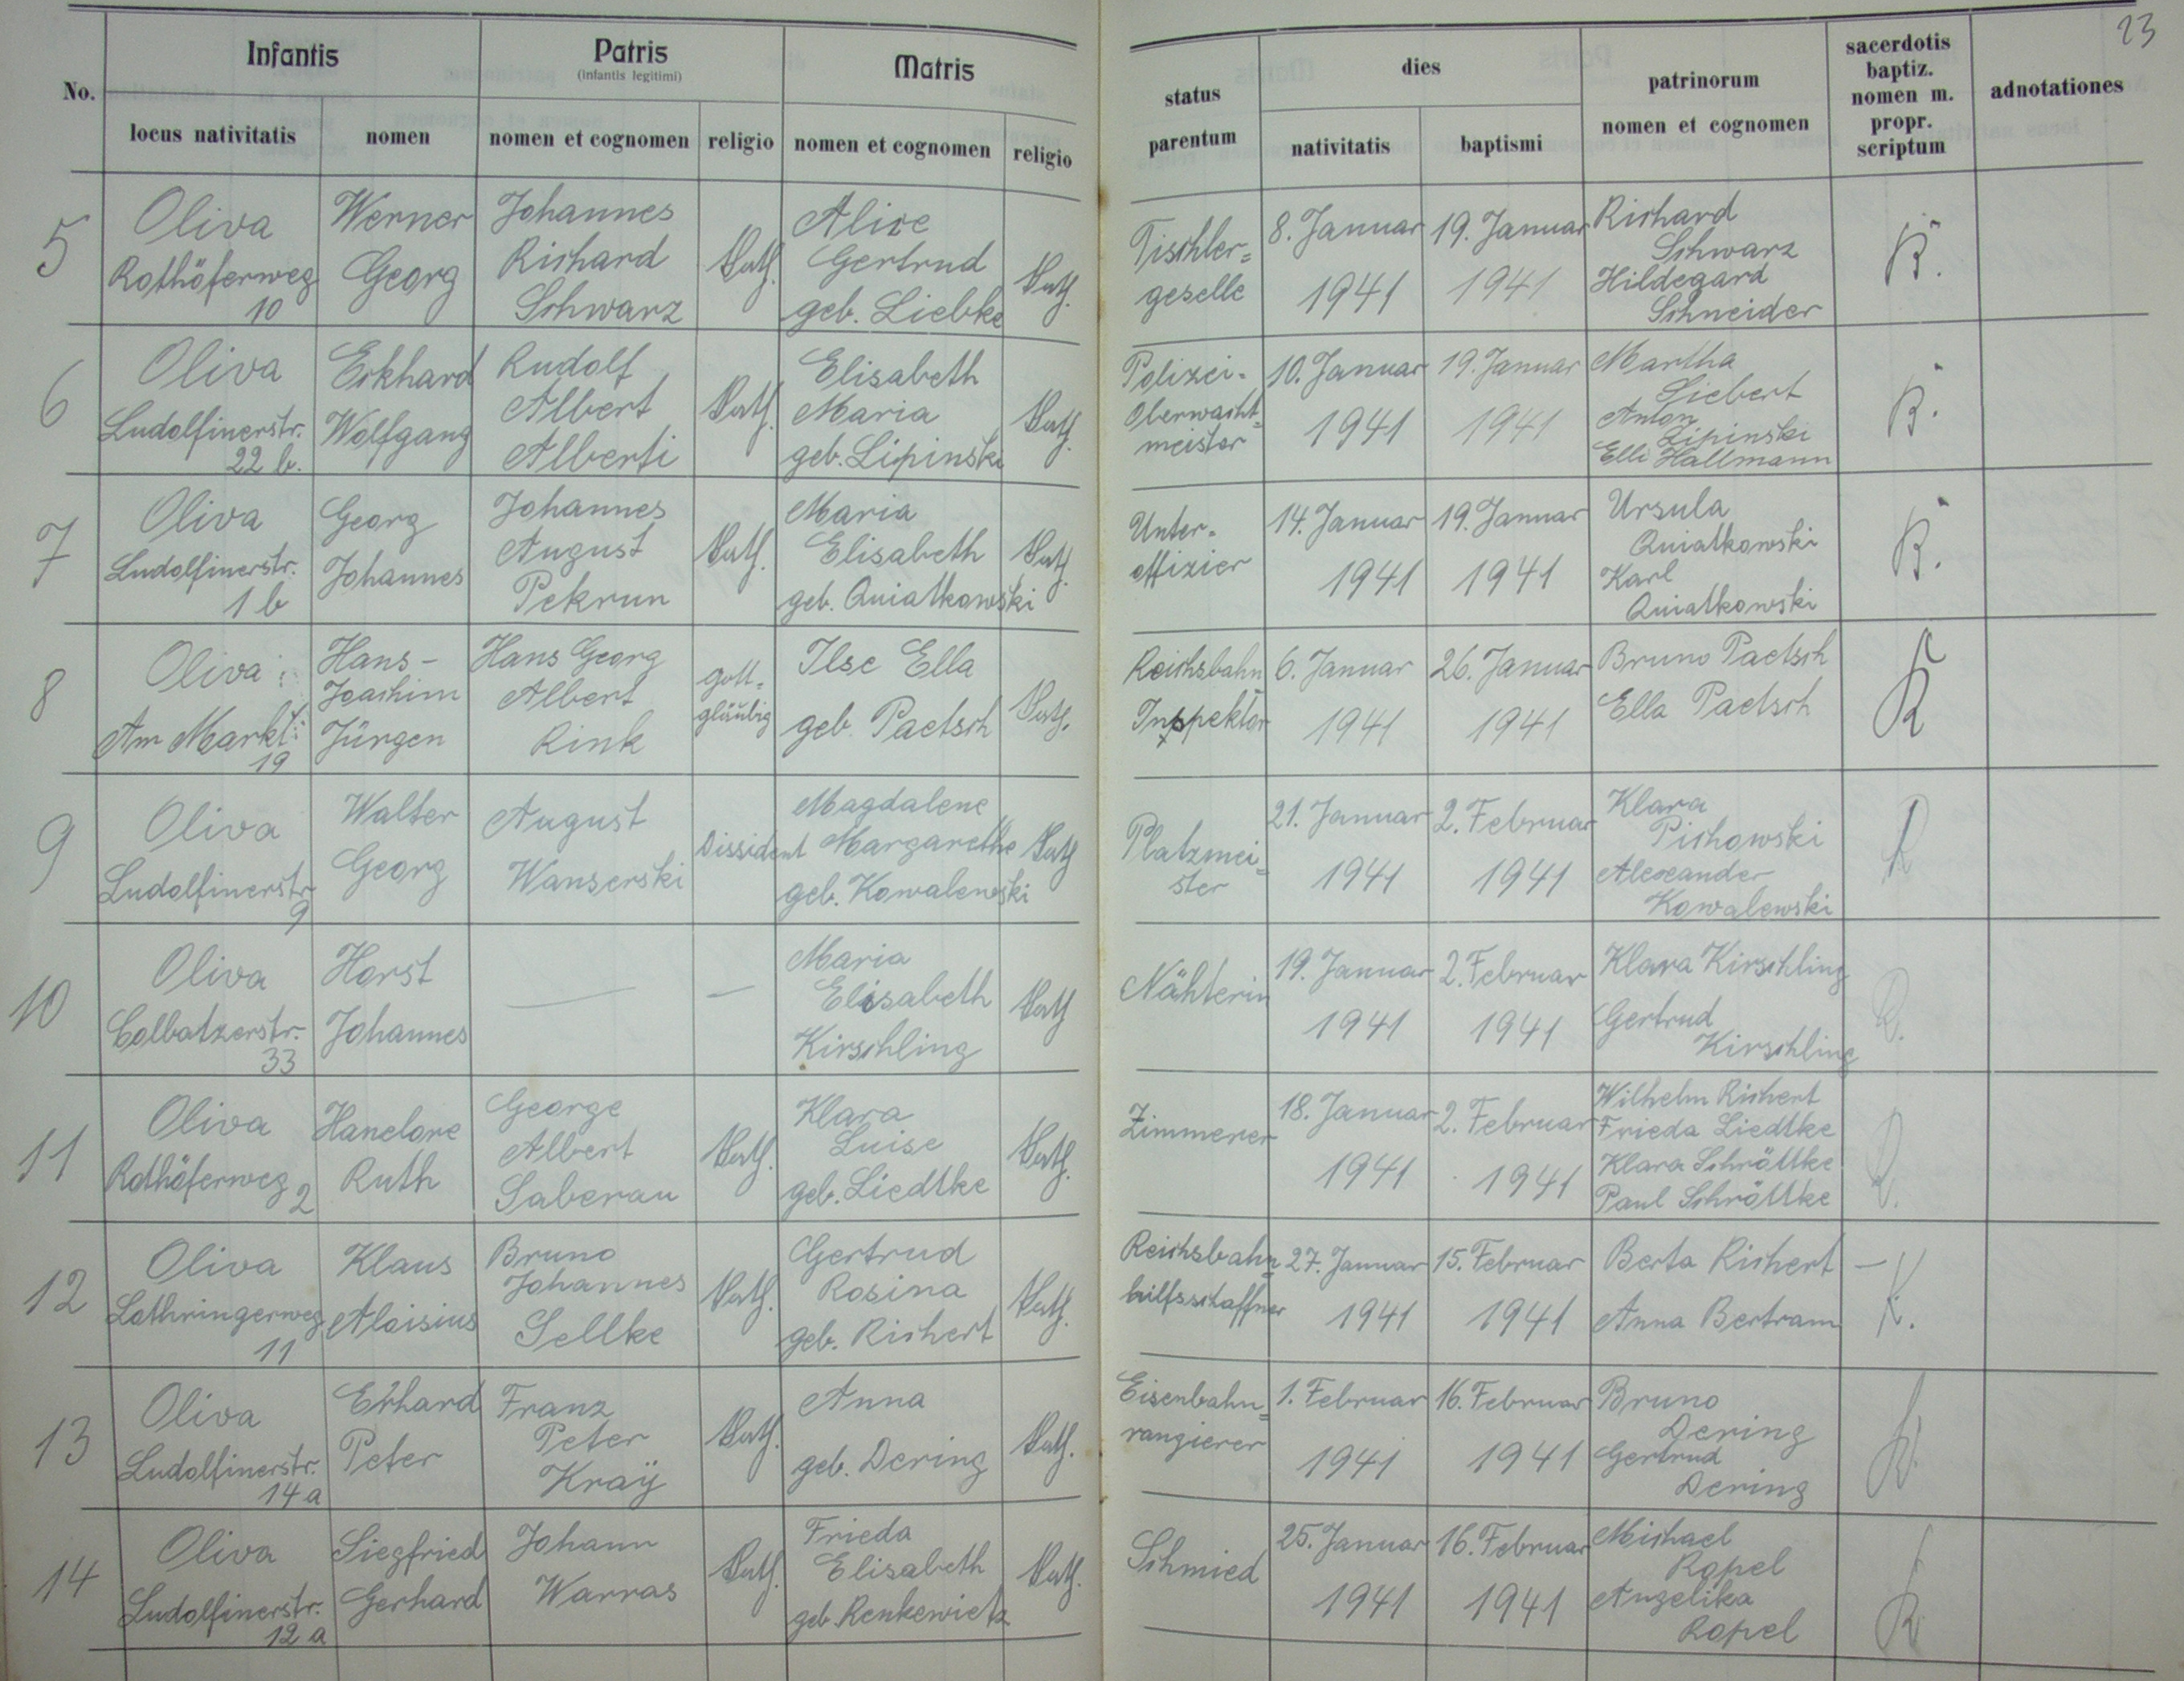 23
Infantis
Patris
(infantis legitimi)
Matris
No.
locus nativitatis
nomen
nomen et cognomen
religio
nomen et cognomen
religio
status parentum
dies
nativitatis
baptismi
patrinorum
nomen et cognomen
sacerdotis
baptiz.
nomen m.
propr.
scriptum
adnotationes
5
Oliva
Rothöferweg
10
Werner
Georg
Johannes
Richard
Schwarz
kath.
Alice
Gertrud
geb. Liebke
kath.
Tischler=
geselle
8. Januar
1941
19. Januar
1941
Richard
Schwarz
Hildegard
Schneider
6
Oliva
Ludolfinerstr.
22 b.
Eckhard
Wolfgang
Rudolf
Albert
Alberti
kath.
Elisabeth
Maria
geb. Lipinski
kath.
Polizei-
Oberwacht=
meister
10. Januar
1941
19. Januar
1941
Martha
Liebert
Anton
Lipinski
Elli Hallmann
7
Oliva
Ludolfinerstr.
1 b
Georg
Johannes
Johannes
August
Pekrun
kath.
Maria
Elisabeth
geb. Quiatkowski
kath.
Unter-
offizier
14. Januar
1941
19. Januar
1941
Ursula
Quiatkowski
Karl
Quiatkowski
8
Oliva
Am Markt
19
Hans-
Joachim
Jürgen
Hans Georg
Albert
Rink
gott=
gläubig
Ilse Ella
geb. Paetsch
kath.
Reichsbahn
Inspektor
6. Januar
1941
26. Januar
1941
Bruno Paetsch
Ella Paetsch
K
9
Oliva
Ludolfinerstr.
9
Walter
Georg
August
Wanserski
Dissident
Magdalene
Margarethe
geb. Kowalewski
kath
Platzmei=
ster
21. Januar
1941
2. Februar
1941
Klara
Pichowski
Alexander
Kowalewski
10
Oliva
Colbatzerstr.
33
Horst
Johannes
—
—
Maria
Elisabeth
Kirschling
kath
Nähterin
19. Januar
1941
2. Februar
1941
Klara Kirschling
Gertrud
Kirschling
11
Oliva
Rothöferweg
2
Hanelore
Ruth
George
Albert
Saberau
kath.
Klara
Luise
geb. Liedtke
kath.
Zimmerer
18. Januar
1941
2. Februar
1941
Wilhelm Richert
Frieda Liedtke
Klara Schröttke
Paul Schröttke
12
Oliva
Lothringerweg
11
Klaus
Aloisius
Bruno
Johannes
Sellke
kath.
Gertrud
Rosina
geb. Richert
kath.
Reichsbahn=
hilfsschaffner
27. Januar
1941
15. Februar
1941
Berta Richert
Anna Bertram
K.
13
Oliva
Ludolfinerstr.
14 a
Erhard
Peter
Franz
Peter
Kraÿ
kath.
Anna
geb. Dering
kath.
Eisenbahn=
rangierer
1. Februar
1941
16. Februar
1941
Bruno
Dering
Gertrud
Dering
14
Oliva
Ludolfinerstr.
12 a
Siegfried
Gerhard
Johann
Warras
kath.
Frieda
Elisabeth
geb. Renkewietz
kath.
Schmied
25. Januar
1941
16. Februar
1941
Michael
Ropel
Angelika
Ropel
K